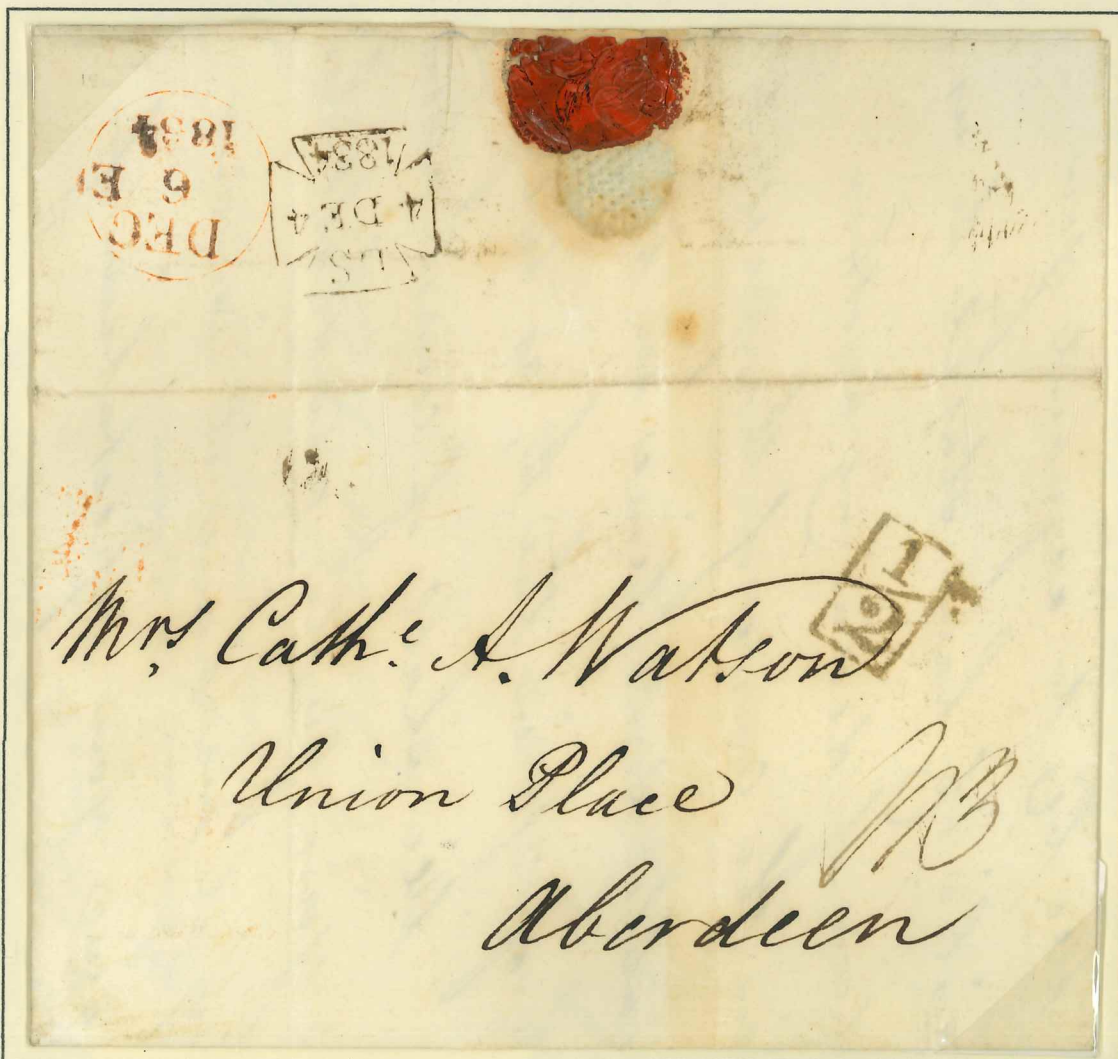 DEC
6 E
1834
4 DE 4
1834
1/2
Mrs Cath.e A. Watson
Union Place
Aberdeen